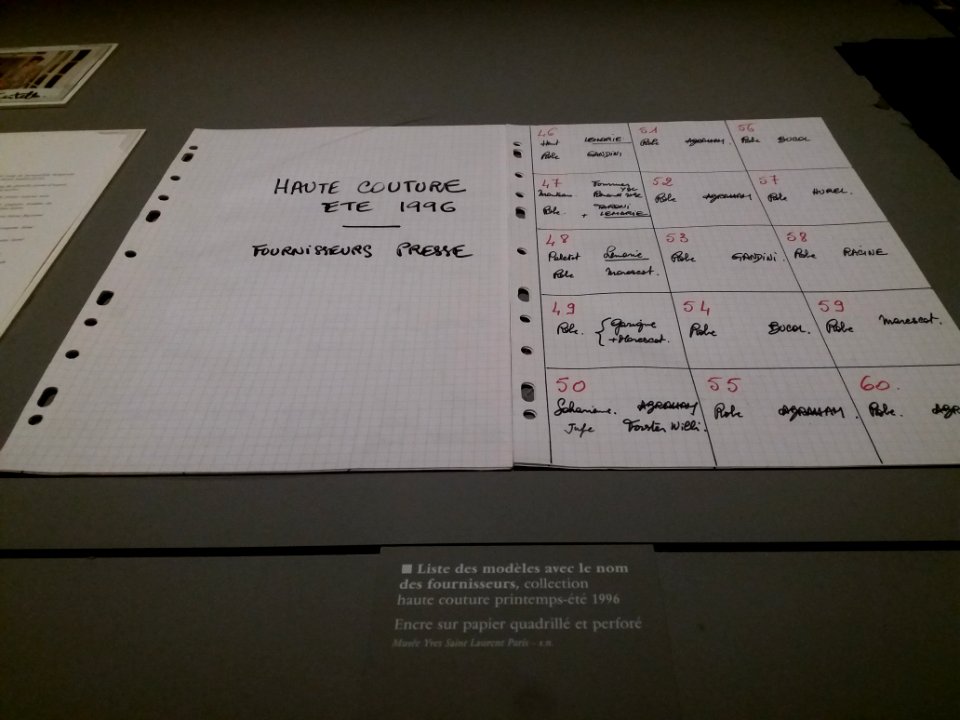 HAUTE COUTURE
ETE 1996
FOURNISSEURS PRESSE
46
Haut LEMARIE
Robe GANDINI
47
Manteau
Robe. TARONI
+ LEMARIE
48
Paletot Lemarie
Robe Marescot.
49
Robe. { Garigue
+ Marescot.
50
Saharienne. ABRAHAM
Jupe Forster Willi
51
Robe ABRAHAM.
52
Robe ABRAHAM
53
Robe GANDINI
54
Robe BUCOL
55
Robe ABRAHAM.
56
Robe BUCOL
57
Robe HUREL.
58
Robe RACINE
59
Robe Marescot.
60.
Robe.
■ Liste des modèles avec le nom
des fournisseurs, collection
haute couture printemps-été 1996
Encre sur papier quadrillé et perforé
Musée Yves Saint Laurent Paris - s.n.